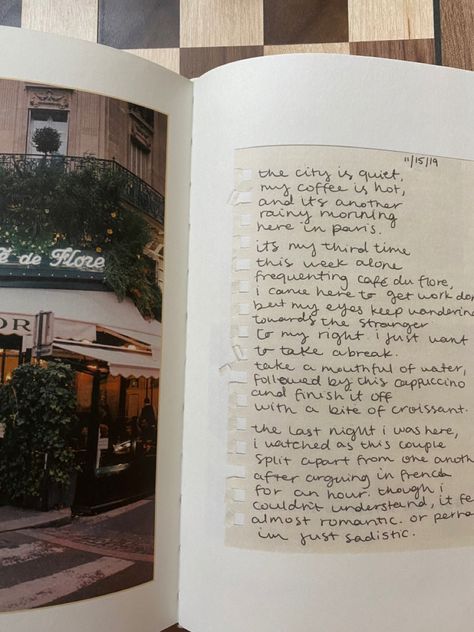 é de Flore
OR
11/15/19
the city is quiet,
my coffee is hot,
and it's another
rainy morning
here in paris.
its my third time
this week alone
frequenting café du flore,
i came here to get work don
but my eyes keep wandering
towards the stranger
to my right. i just want
to take a break.
take a mouthful of water,
followed by this cappuccino
and finish it off
with a bite of croissant.
the last night i was here,
i watched as this couple
split apart from one anoth
after arguing in french
for an hour. though i
couldn't understand, it fe
almost romantic. or perha
im just sadistic.